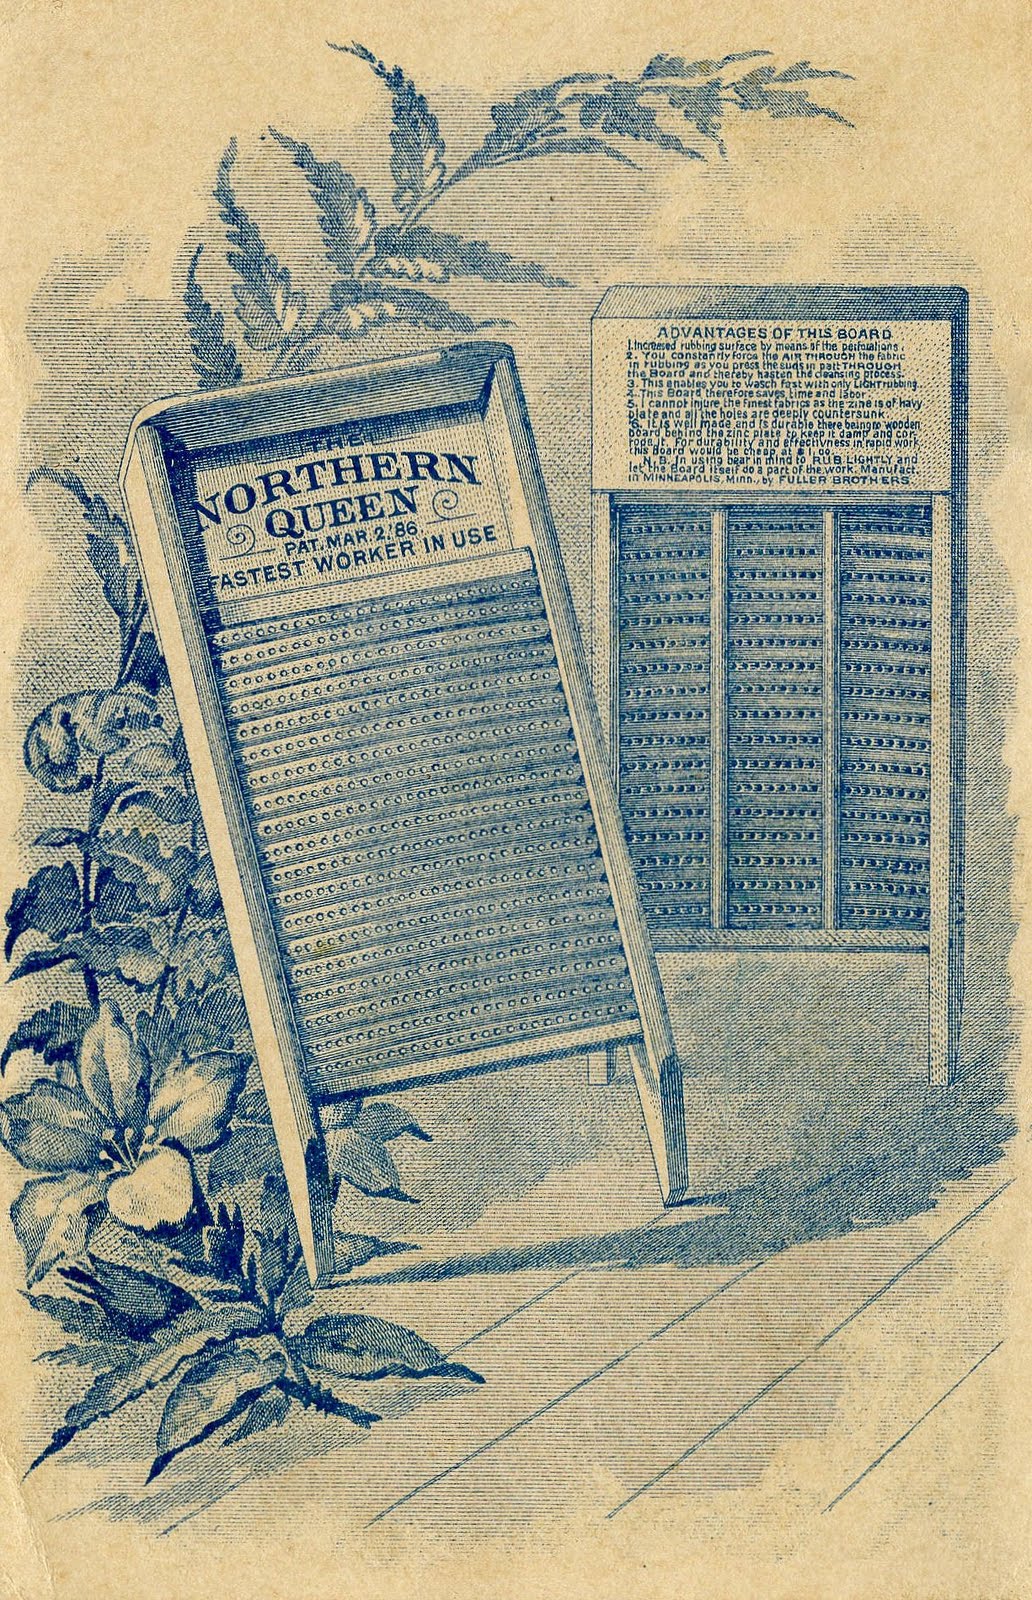 THE
NORTHERN
QUEEN
PAT. MAR. 2. '86
FASTEST WORKER IN USE
ADVANTAGES OF THIS BOARD
1. Increased rubbing surface by means of the perforations.
2. You constantly force the AIR THROUGH the fabric
in rubbing as you press the suds in part THROUGH
the Board and thereby hasten the cleansing process.
3. This enables you to wasch fast with only LIGHT rubbing.
4. This Board therefore saves time and labor
5. I cannot injure the finest fabrics as the zinc is of havy
plate and all the holes are deeply countersunk
6. It is well made and is durable there being no wooden
board behind the zinc plate to keep it damp and cor
rode it. For durability and effectivness in rapid work
this Board would be cheap at $1,00.
N.B. In using bear in mind to RUB LIGHTLY and
let the Board itself do a part of the work. Manufact.
in MINNEAPOLIS, Minn., by FULLER BROTHERS